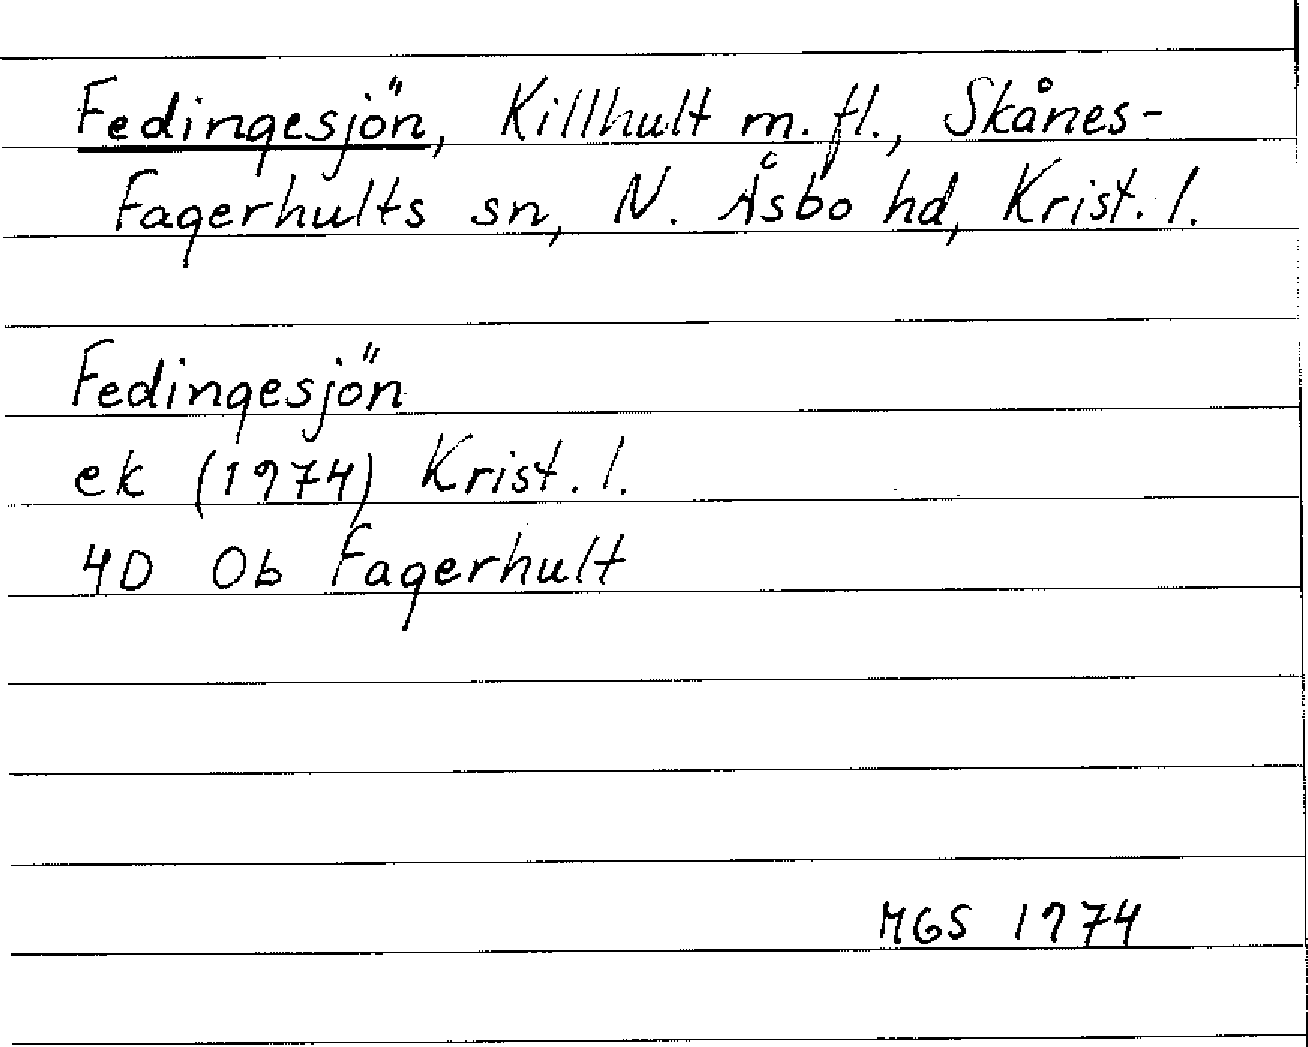 Fedingesjön, Killhult m. fl., Skånes-
Fagerhults sn, N. Åsbo hd, Krist. l.
Fedingesjön
ek (1974) Krist. l.
4D 0b Fagerhult
MGS 1974